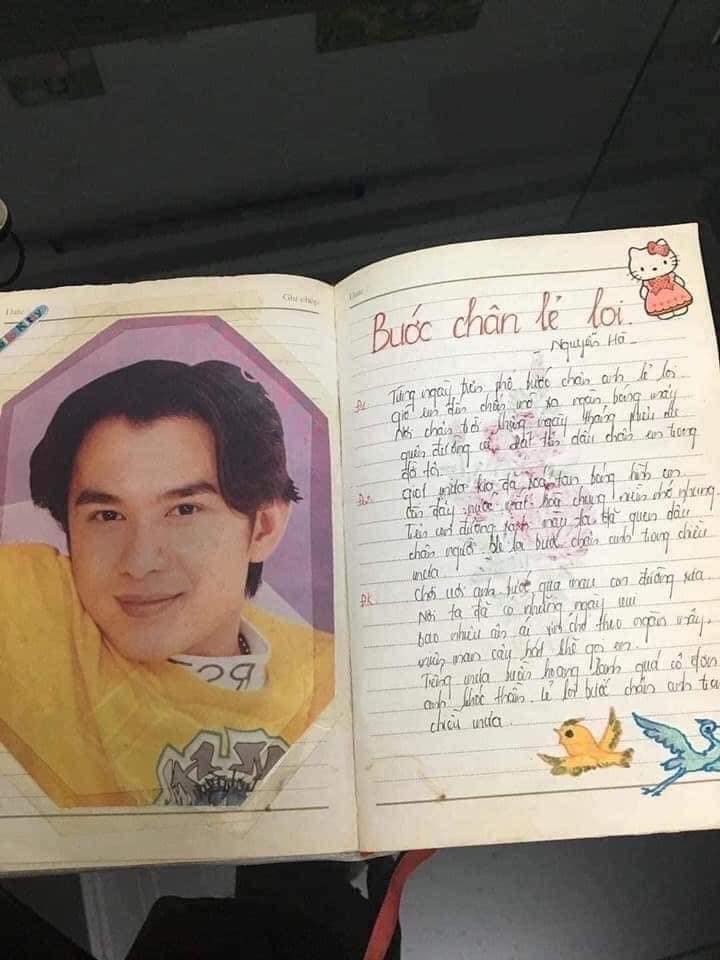 Date
Ghi chép
Date
Bước chân lẻ loi.
Nguyễn Hà
Đk Từng ngày trên phố bước chân anh lẻ loi
gió em đến chốn mô xa ngàn bóng mây
Nơi chân trời tháng ngày
quên đường cũ, dấu chân em trong
đời tôi.
Đk2 giọt mưa kia đã hoà tan bóng hình em
còn đây nước mắt hoà chung niềm nhớ nhung
Trên con đường ta đã quen dấu
chân người lẻ loi bước chân anh trong chiều
mưa
Đk Chơi vơi anh bước qua mau con đường xưa
Nơi ta đã có những ngày vui
bao nhiêu ân ái vỡ theo ngàn mây.
miên man cây hát khẽ gọi em.
Tiếng mưa buồn hoang lạnh quá cô đơn
anh khóc thầm. lẻ loi bước chân anh trong
chiều mưa.